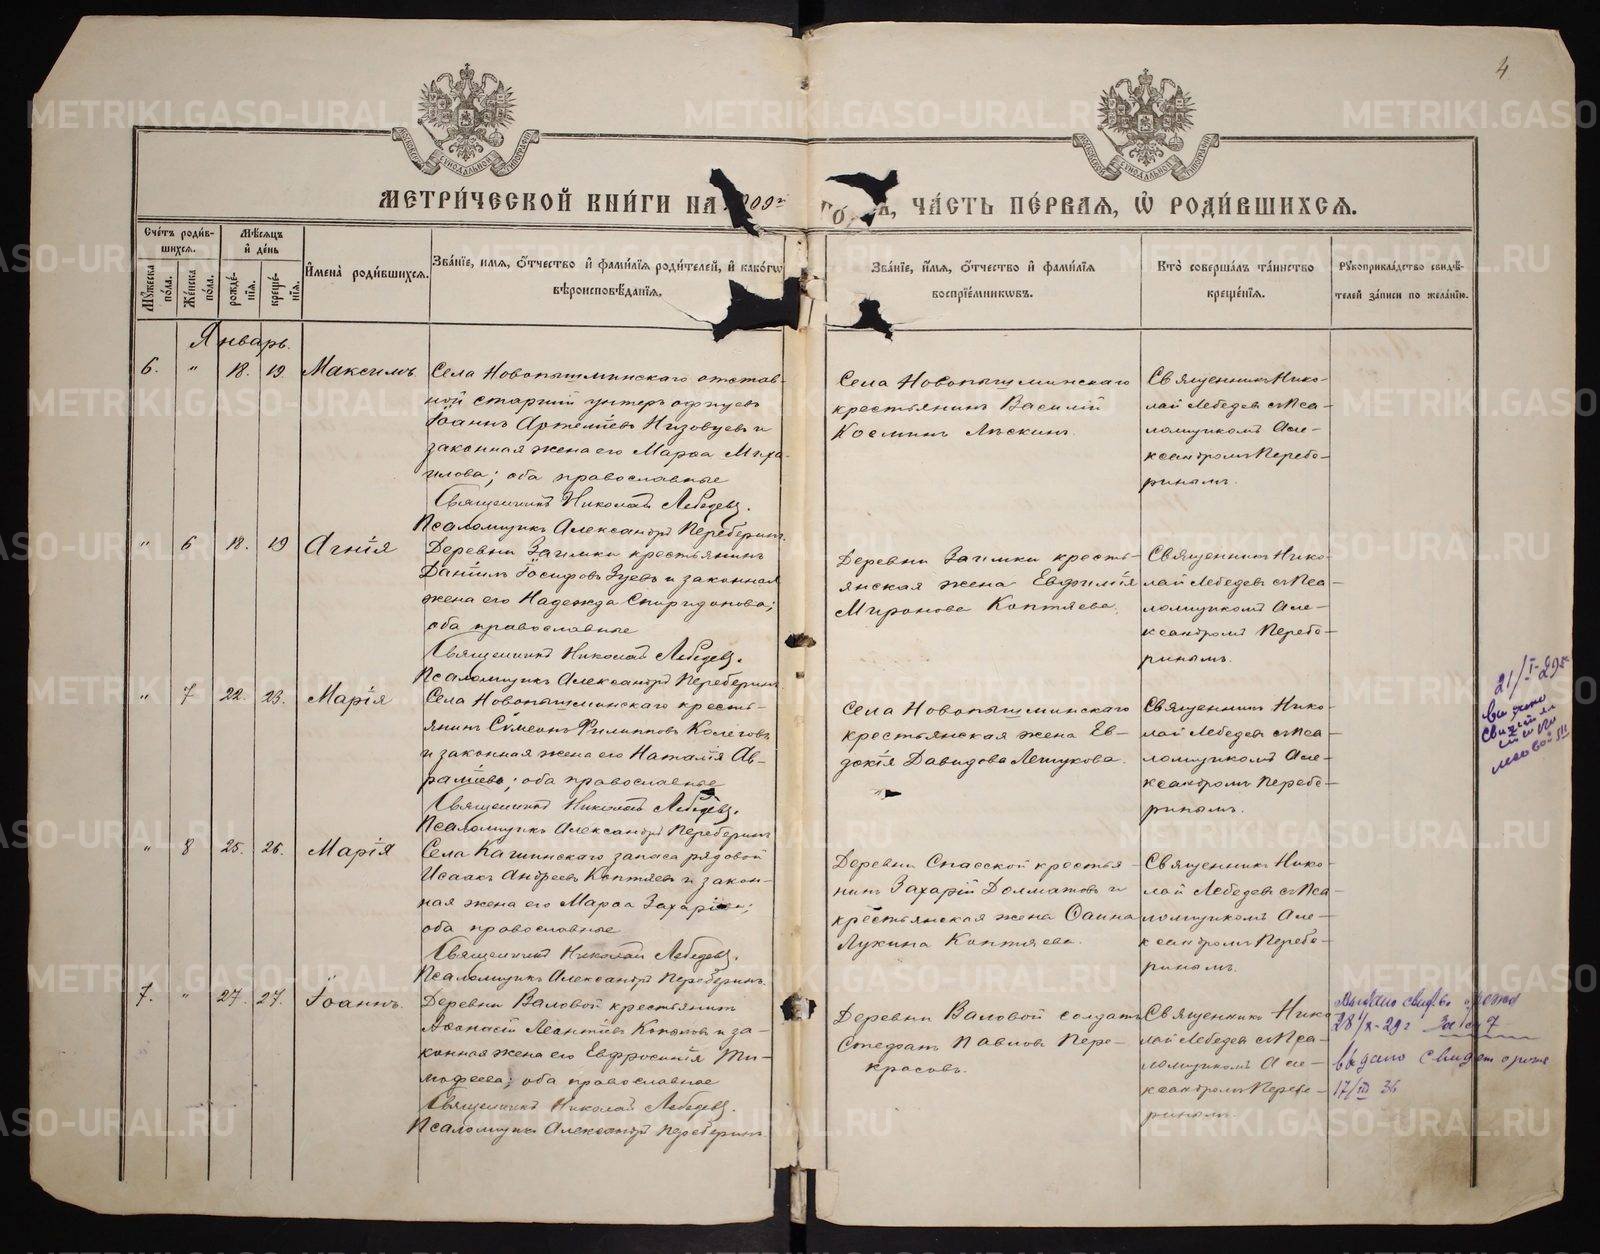 4
МОСКОВСКОЙ СѴНОДАЛЬНОЙ ТИПОГРАФІИ
МОСКОВСКОЙ СѴНОДАЛЬНОЙ ТИПОГРАФІИ
МЕТРИ́ЧЕСКОЙ КНИ́ГИ НА 909 г
ЧА́СТЬ ПЕ́РВАЯ, Ѡ҆ РОДИ́ВШИХСЯ.
Сче́тъ роди́в-
шихся.
Мѣ́сяцъ
и҆ де́нь
Му́жеска по́ла.
Же́нска по́ла.
рожде́-
нія.
креще́-
нія.
И҆мена̀ роди́вшихся.
Зва́нїе, и҆мя, ѻ҆́тчество и҆ фами́лїя роди́телей, и҆ како́гѡ
вѣроисповѣ́данїя.
Зва́нїе, и҆́мя, ѻ҆́тчество и҆ фами́лїя
воспрїе́мникѡвъ.
Кто̀ соверша́лъ та́инство
креще́нїя.
Рꙋкоприкла́дство свидѣ́-
телей за́писи по жела́нїю.
Январь.
6. " 18. 19. Максимъ
Села Новопышминскаго отстав-
ной старшій унтеръ офицеръ
Іоаннъ Артеміевъ Низовцевъ и
законная жена его Марѳа Миха-
илова; оба православные
Священникъ Николай Лебедевъ.
Псаломщикъ Александръ Переберинъ.
Села Новопышминскаго
крестьянинъ Василій
Косминъ Лѣскинъ.
Священникъ Нико-
лай Лебедевъ съ Пса-
ломщикомъ Але-
ксандромъ Перебе-
ринымъ.
" 6 18. 19 Агнія
Деревни Заимки крестьянинъ
Даніилъ Іосифовъ Зуевъ и законная
жена его Надежда Спиридонова;
оба православные
Священникъ Николай Лебедевъ.
Псаломщикъ Александръ Переберинъ.
Деревни Заимки кресть-
янская жена Евфимія
Миронова Коптяева.
Священникъ Нико-
лай Лебедевъ съ Пса-
ломщикомъ Але-
ксандромъ Перебе-
ринымъ.
" 7 22. 23. Марія
Села Новопышминскаго кресть-
янинъ Сѵмеонъ Филипповъ Колеговъ
и законная жена его Наталія Ав-
раміева; оба православные
Священникъ Николай Лебедевъ.
Псаломщикъ Александръ Переберинъ
Села Новопышминскаго
крестьянская жена Ев-
докія Давидова Лешукова.
Священникъ Нико-
лай Лебедевъ съ Пса-
ломщикомъ Але-
ксандромъ Перебе-
ринымъ.
21/I-29г
" 8 25. 26. Марія
Села Кашинскаго запаса рядовой
Исаакъ Андреевъ Коптяевъ и закон-
ная жена его Марѳа Захаріева;
оба православные
Священникъ Николай Лебедевъ.
Псаломщикъ Александръ Переберинъ.
Деревни Спасской крестья-
нинъ Захарій Долматовъ и
крестьянская жена Ѳаина
Лукина Коптяева.
Священникъ Нико-
лай Лебедевъ съ Пса-
ломщикомъ Але-
ксандромъ Перебе-
ринымъ.
7. " 27. 27. Іоаннъ.
Деревни Валовой крестьянинъ
Аѳанасій Леонтіевъ Копыловъ и за-
конная жена его Евфросинія Ти-
моѳеева; оба православные
Священникъ Николай Лебедевъ.
Псаломщикъ Александръ Переберинъ.
Деревни Валовой солдатъ
Стефанъ Павловъ Пере-
красовъ.
Священникъ Нико-
лай Лебедевъ съ Пса-
ломщикомъ Але-
ксандромъ Перебе-
ринымъ.
Выдано свид-во о рожд
28/X-29 г за № 7
выдано свидет о рожд
17/III 36
METRIKI.GASO-URAL.RU